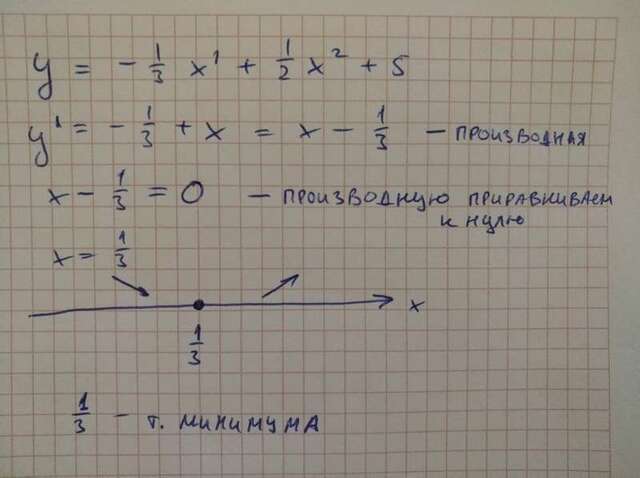 y = - 1/3 x¹ + 1/2 x² + 5
y' = - 1/3 + x = x - 1/3 - ПРОИЗВОДНАЯ
x - 1/3 = 0 - ПРОИЗВОДНУЮ ПРИРАВНИВАЕМ
К НУЛЮ
x = 1/3
x
1/3
1/3 - Т. МИНИМУМА